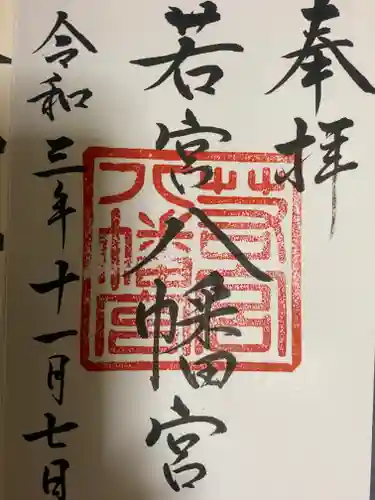 奉拝
若宮八幡宮
令和三年十一月七日
若宮
八幡宮